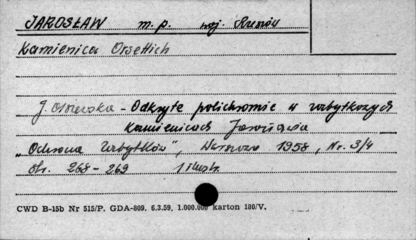 JAROSŁAW m.p. woj. Rzeszów
Kamienica Orsettich
J. Ossowska - Odkryte polichromie w zabytkowych
kamienicach Jarosławia
„Ochrona Zabytków", Warszawa 1958, Nr. 3/4
str. 268 - 269 1 ilustr.
CWD B-15b Nr 515/P. GDA-809. 6.3.59. 1.000.000 karton 180/V.